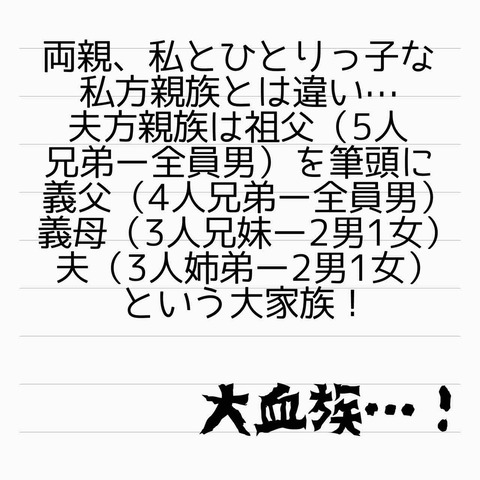 両親、私とひとりっ子な
私方親族とは違い…
夫方親族は祖父（5人
兄弟ー全員男）を筆頭に
義父（4人兄弟ー全員男）
義母（3人兄妹ー2男1女）
夫（3人姉弟ー2男1女）
という大家族！
大血族…！